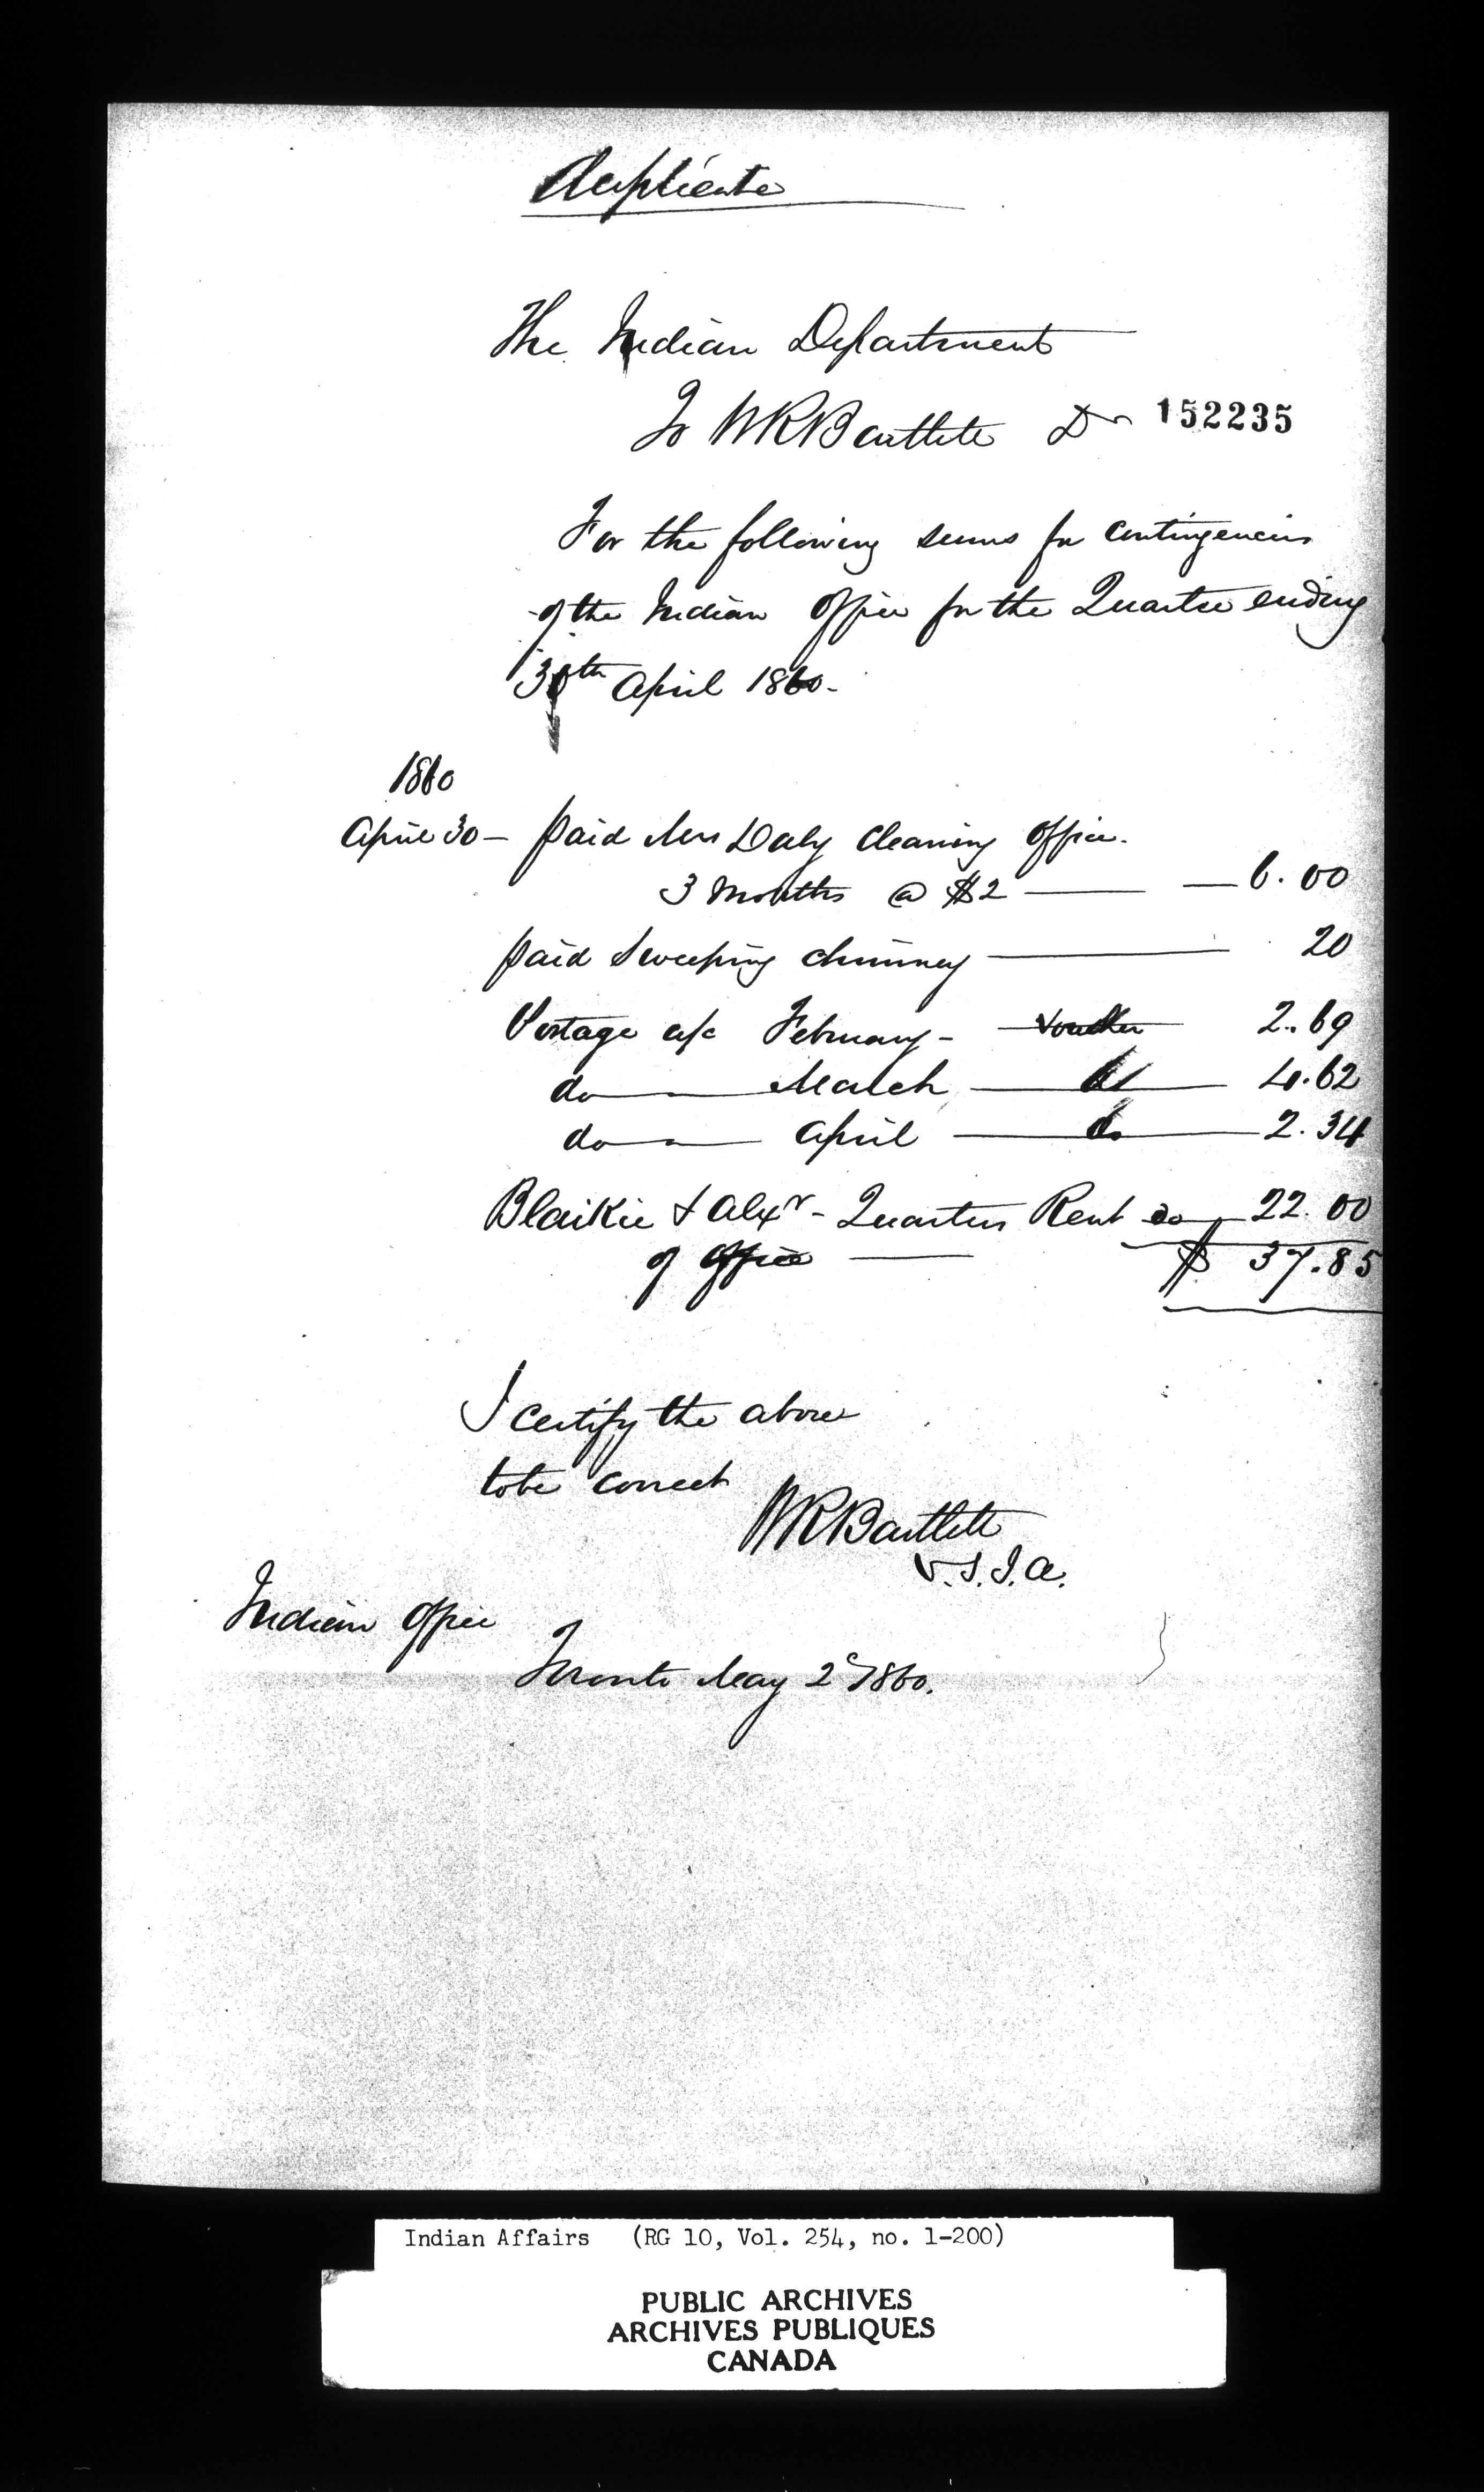 Duplicate
The Indian Department
To W R Bartlett Dr 152235
For the following sums for Contingencies
of the Indian Office for the Quarter ending
30th April 1860.
1860
April 30 – paid Mrs Daly Cleaning Office.
3 Months @ $2 — — 6.00
paid Sweeping Chimney — 20
Postage a/c February – Voucher 2.69
do — March — do — 4.62
do — April — do — 2.34
Blaikie & Alexr – Quarters Rent do — 22.00
of Office — $ 37.85
I certify the above
to be correct
W R Bartlett
V.S.I.A.
Indian Office
Toronto May 2d 1860.
Indian Affairs (RG 10, Vol. 254, no. 1-200)
PUBLIC ARCHIVES
ARCHIVES PUBLIQUES
CANADA